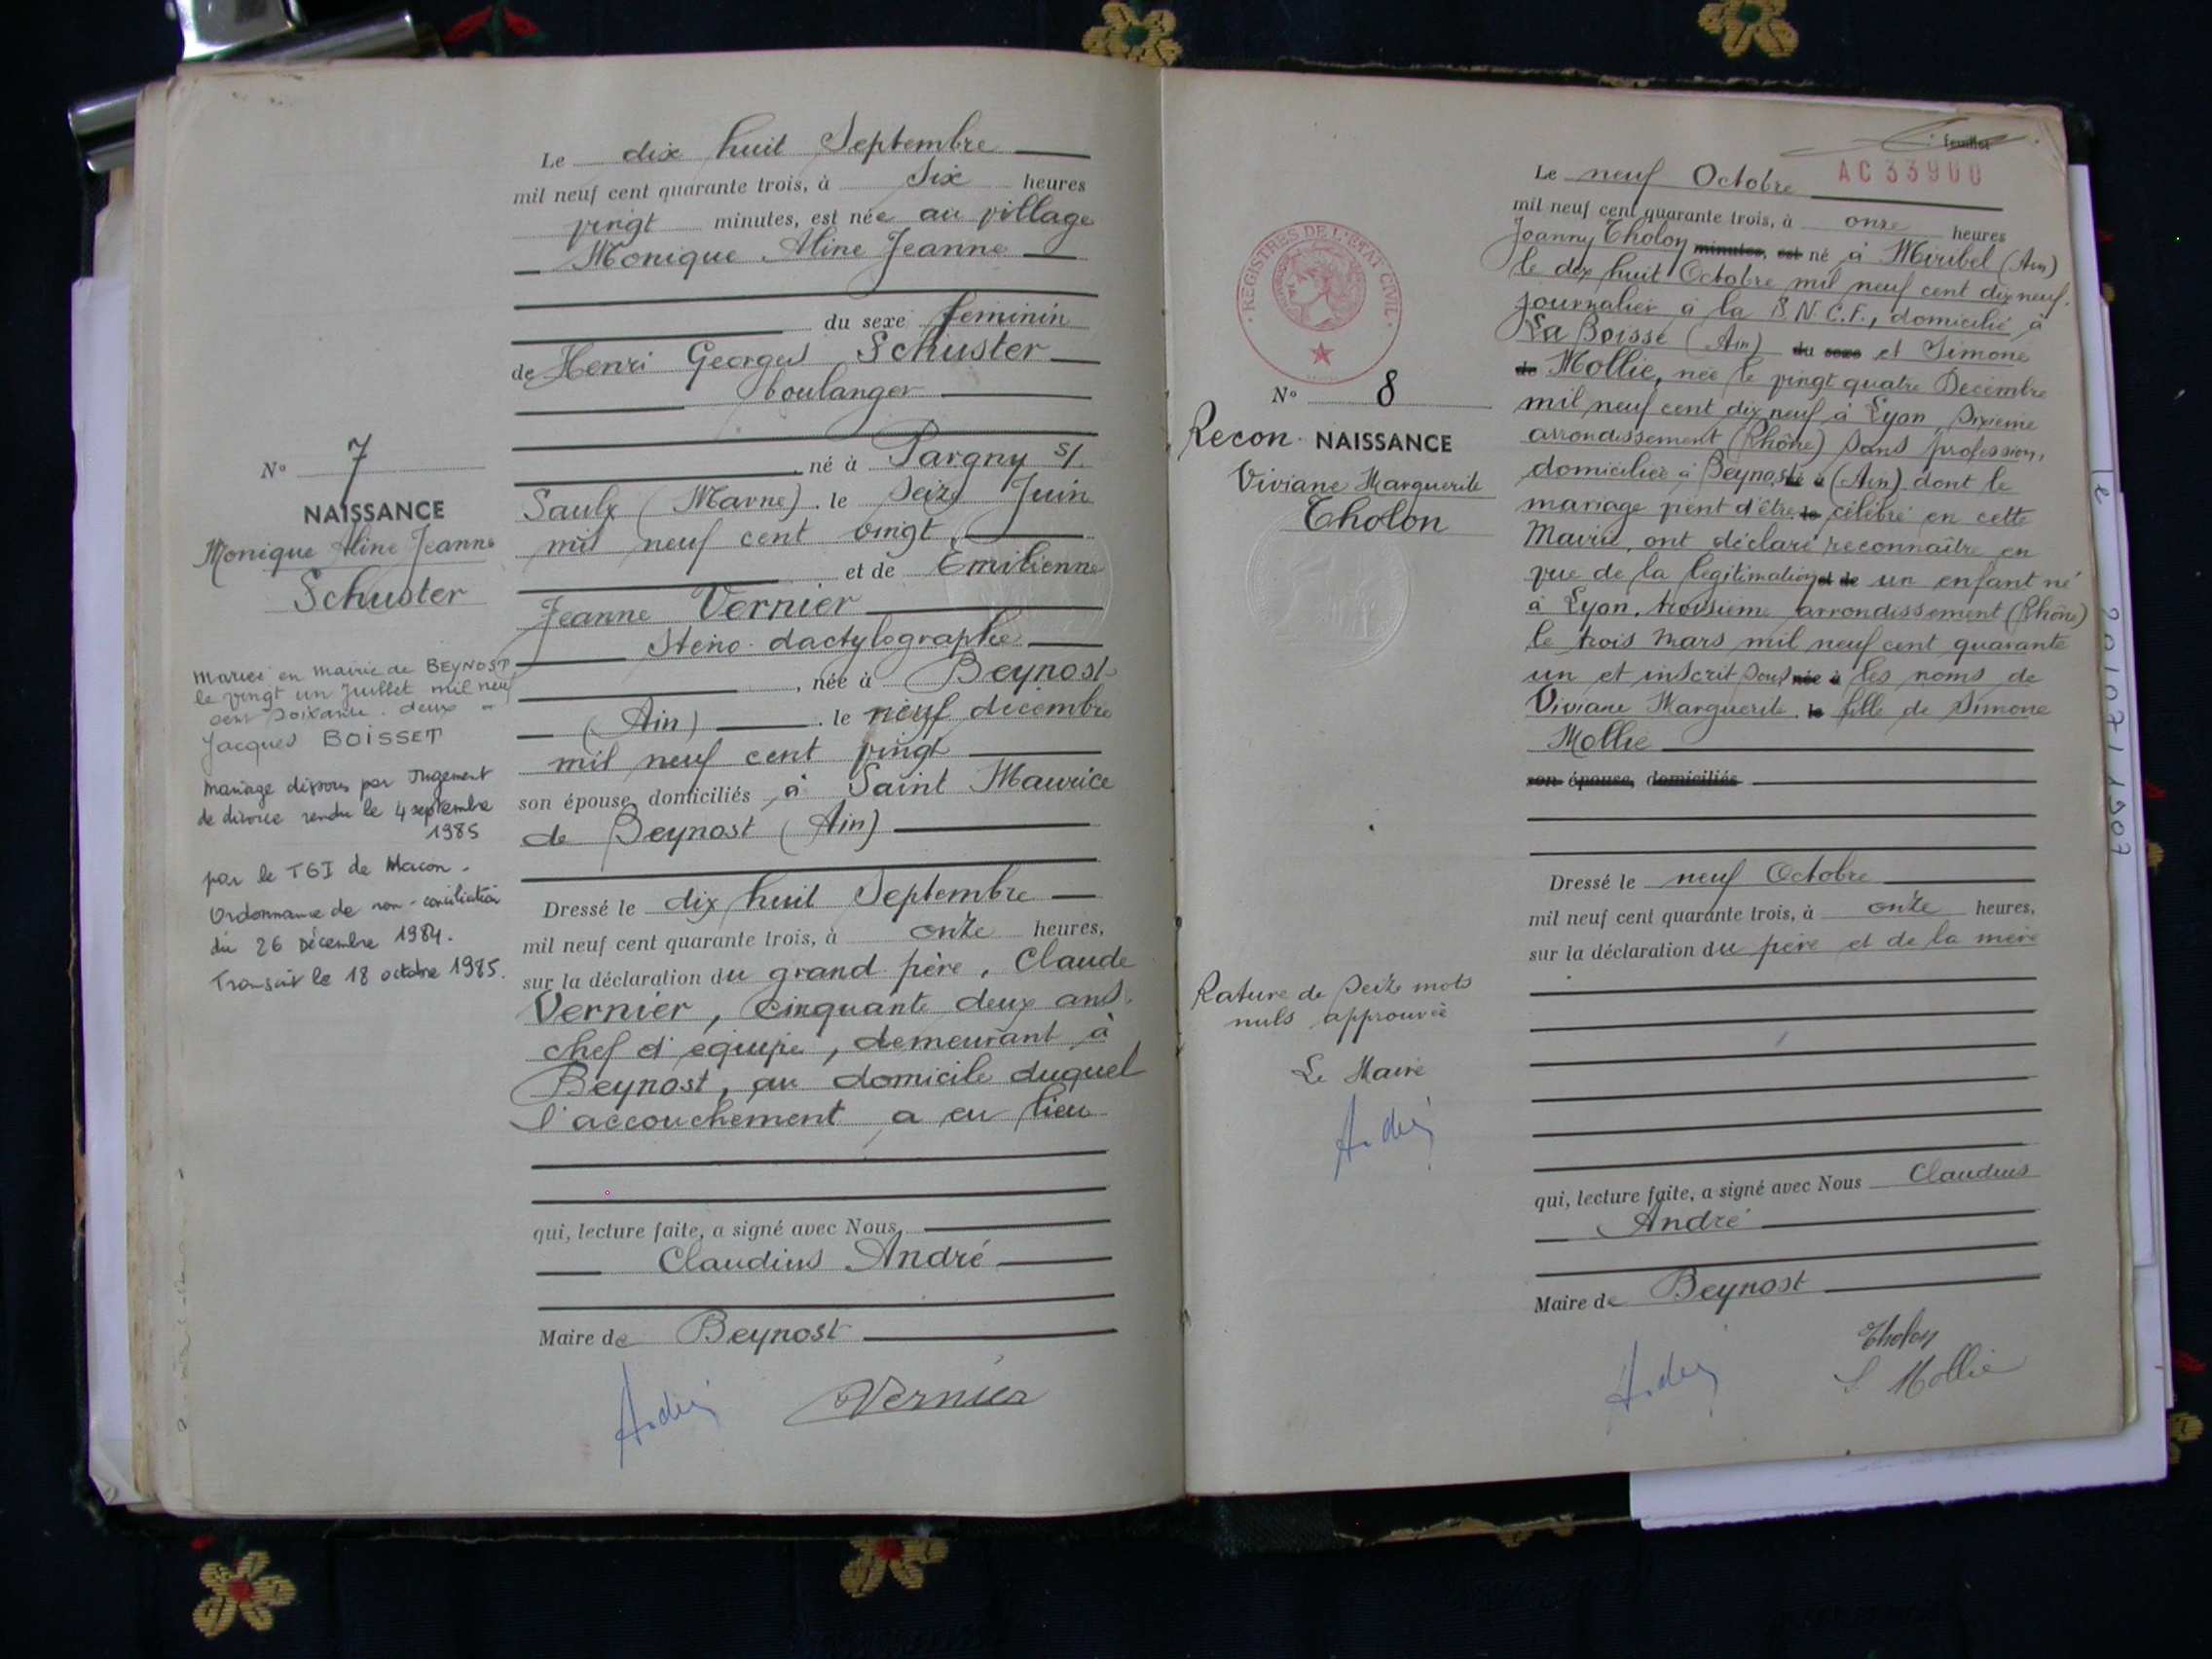 Le dix huit Septembre
mil neuf cent quarante trois, à six heures
vingt minutes, est née au village
Monique Aline Jeanne
du sexe féminin
de Henri Georges Schuster
boulanger
, né à Pargny s/.
Saulx (Marne), le seize Juin
mil neuf cent vingt
et de Emilienne
Jeanne Vernier
sténo-dactylographe
, née à Beynost
(Ain), le neuf décembre
mil neuf cent vingt
son épouse, domiciliés à Saint Maurice
de Beynost (Ain)
Dressé le dix huit Septembre
mil neuf cent quarante trois, à onze heures,
sur la déclaration du grand père, Claude
Vernier, cinquante deux ans,
chef d'équipe, demeurant à
Beynost, au domicile duquel
l'accouchement a eu lieu
qui, lecture faite, a signé avec Nous,
Claudius André
Maire de Beynost
Vernier
N° 7
NAISSANCE
Monique Aline Jeanne
Schuster
Mariée en mairie de BEYNOST
le vingt un Juillet mil neuf
cent soixante. deux -
Jacques BOISSET
Mariage dissous par Jugement
de divorce rendu le 4 septembre
1985
par le TGI de Macon.
Ordonnance de non-conciliation
du 26 Décembre 1984.
Transcrit le 18 octobre 1985.
feuillet
AC 33900
Le neuf Octobre
mil neuf cent quarante trois, à onze heures
Joanny Tholon minutes, est né à Miribel (Ain)
le dix huit Octobre mil neuf cent dix neuf,
journalier à la S.N.C.F., domicilié à
La Boisse (Ain) du sexe et Simone
de Mollie, née le vingt quatre Décembre
mil neuf cent dix neuf à Lyon, sixième
arrondissement (Rhône) sans profession,
domiciliée à Beynost à (Ain) dont le
mariage vient d'être le célébré en cette
Mairie, ont déclaré reconnaître en
vue de la légitimation et de un enfant né
à Lyon, troisième arrondissement (Rhône)
le trois Mars mil neuf cent quarante
un et inscrit sous née à les noms de
Viviane Marguerite, le fille de Simone
Mollie
son épouse, domiciliés
Dressé le neuf Octobre
mil neuf cent quarante trois, à onze heures,
sur la déclaration du père et de la mère
qui, lecture faite, a signé avec Nous Claudius
André
Maire de Beynost
Tholon
S Mollie
REGISTRES DE L'ETAT CIVIL
N° 8
Recon. NAISSANCE
Viviane Marguerite
Tholon
Rature de seize mots
nuls approuvée
Le Maire